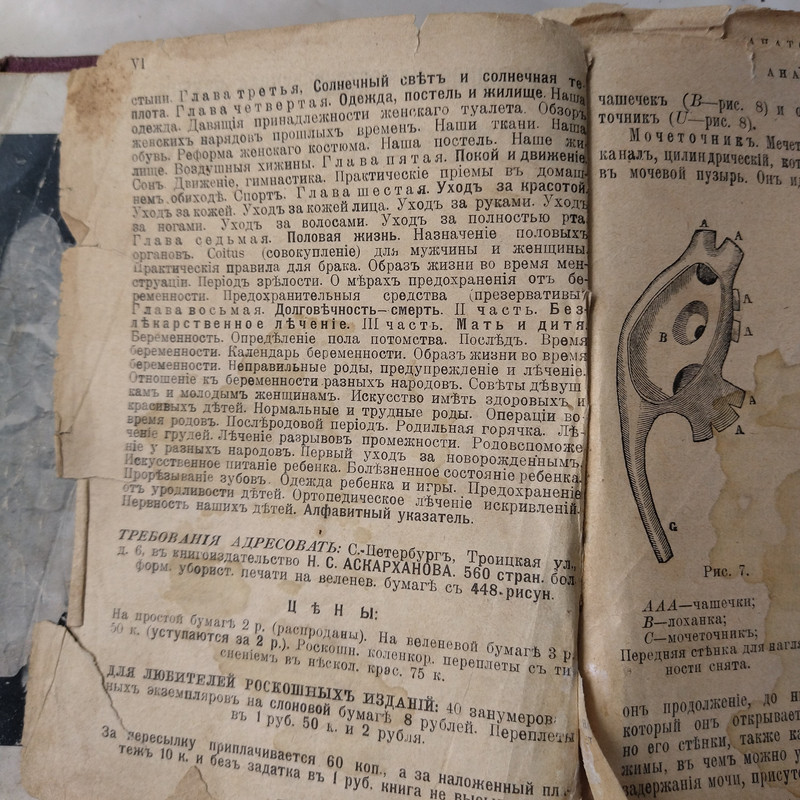 VI
стыни. Глава третья, Солнечный свѣтъ и солнечная те-
плота. Глава четвертая. Одежда, постель и жилище. Наша
одежда. Давящія принадлежности женскаго туалета. Обзоръ
женскихъ нарядовъ прошлыхъ временъ. Наши ткани. Наша
обувь. Реформа женскаго костюма. Наша постель. Наше жи-
лище. Воздушныя хижины. Глава пятая. Покой и движеніе.
Сонъ. Движеніе, гимнастика. Практическіе пріемы въ домаш-
немъ обиходѣ. Спортъ. Глава шестая. Уходъ за красотой.
Уходъ за кожей. Уходъ за кожей лица. Уходъ за руками. Уходъ
за ногами. Уходъ за волосами. Уходъ за полностью рта.
Глава седьмая. Половая жизнь. Назначеніе половыхъ
органовъ. Coitus (совокупленіе) для мужчины и женщины.
Практическія правила для брака. Образъ жизни во время мен-
струаціи. Періодъ зрѣлости. О мѣрахъ предохраненія отъ бе-
ременности. Предохранительныя средства (презервативы)
Глава восьмая. Долговѣчность—смерть. II часть. Без-
лѣкарственное лѣченіе. III часть. Мать и дитя.
Беременность. Опредѣленіе пола потомства. Послѣдъ. Время
беременности. Календарь беременности. Образъ жизни во время
беременности. Неправильные роды, предупрежденіе и лѣченіе.
Отношеніе къ беременности разныхъ народовъ. Совѣты дѣвуш
камъ и молодымъ женщинамъ. Искусство имѣть здоровыхъ и
красивыхъ дѣтей. Нормальные и трудные роды. Операціи во
время родовъ. Послѣродовой періодъ. Родильная горячка. Лѣ-
ченіе грудей. Лѣченіе разрывовъ промежности. Родовспоможе
ніе у разныхъ народовъ. Первый уходъ за новорожденнымъ.
Искусственное питаніе ребенка. Болѣзненное состояніе ребенка.
Прорѣзываніе зубовъ. Одежда ребенка и игры. Предохраненіе
отъ уродливости дѣтей. Ортопедическое лѣченіе искривленій.
Нервность нашихъ дѣтей. Алфавитный указатель.
ТРЕБОВАНІЯ АДРЕСОВАТЬ: С.-Петербургъ, Троицкая ул.,
д. 6, въ книгоиздательство Н. С. АСКАРХАНОВА. 560 стран. бол
форм. уборист. печати на веленев. бумагѣ съ 448 рисун.
ЦѢНЫ:
На простой бумагѣ 2 р. (распроданы). На веленевой бумагѣ 3 р.
50 к. (уступаются за 2 р.). Роскошн. коленкор. переплеты съ ти
сненіемъ въ нѣскол. крас. 75 к.
ДЛЯ ЛЮБИТЕЛЕЙ РОСКОШНЫХЪ ИЗДАНІЙ: 40 занумеров.
ныхъ экземпляровъ на слоновой бумагѣ 8 рублей. Переплеты
въ 1 руб. 50 к. и 2 рубля.
За пересылку приплачивается 60 коп., а за наложенный пл
тежъ 10 к. и безъ задатка въ 1 руб. книга не
АНА
чашечекъ (B—рис. 8) и
точникъ (U—рис. 8).
Мочеточникъ. Мочет
каналъ, цилиндрическій, кот
въ мочевой пузырь. Онъ и
A
A
A
A
A
A
B
G
Рис. 7.
AAA—чашечки;
B—лоханка;
C—мочеточникъ;
Передняя стѣнка для нагля
ности снята.
онъ продолженіе, до н
который онъ открывает
но его стѣнки, также к
жимы, въ чемъ можно у
задержанія мочи, присут